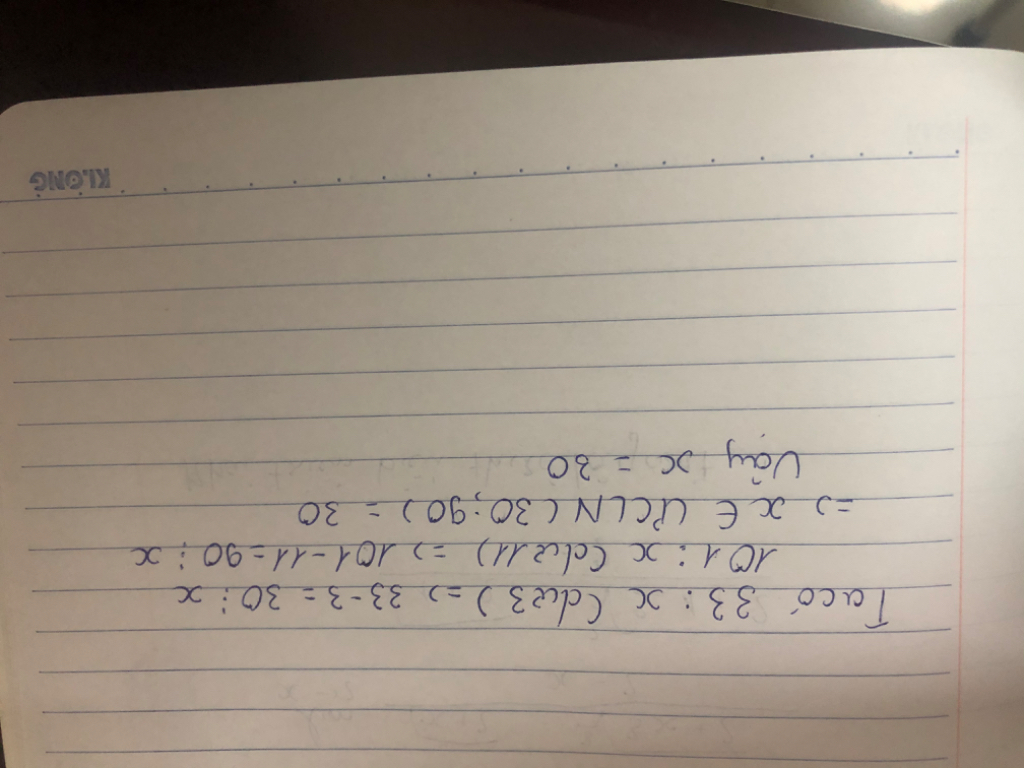 Ta có 33 : x (dư 3) => 33 - 3 = 30 ⋮ x
101 : x (dư 11) => 101 - 11 = 90 ⋮ x
=> x ∈ ƯCLN (30; 90) = 30
Vậy x = 30
KLONG